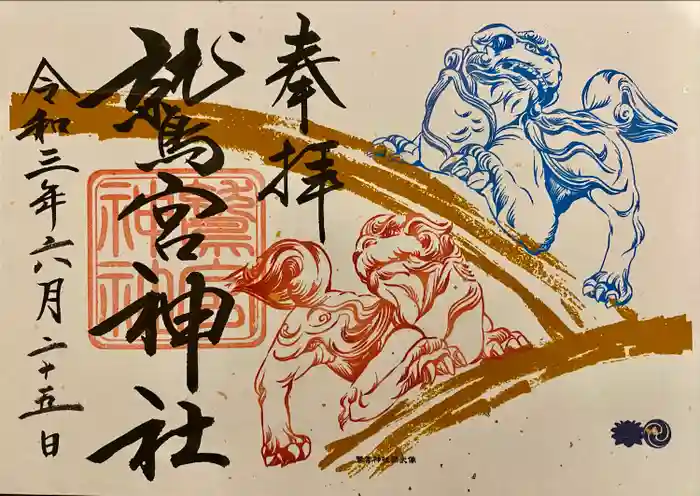 奉拝
鷲宮神社
令和三年六月二十五日
鷲宮
神社